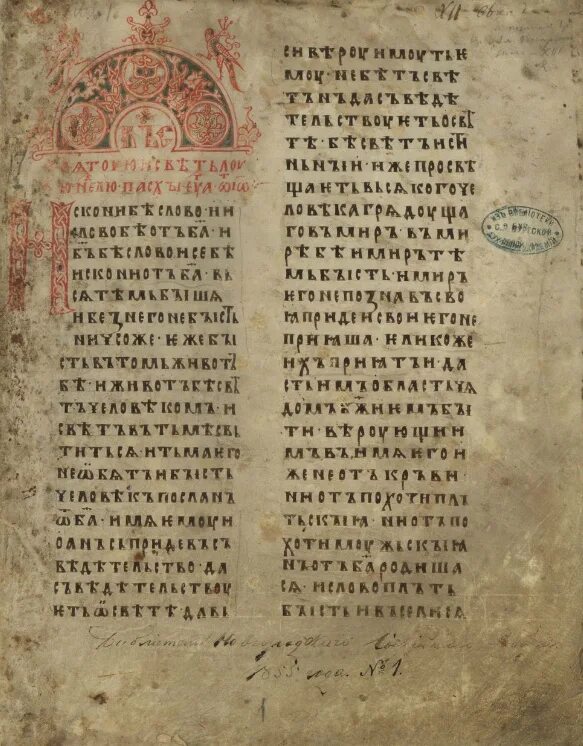 ВЪС
ѦТОУЮ И СВѢТЬЛОУ
Ю НЕЛЮ ПАСХЫ ЕУА Ѿ ІѠ
ИСКОНИ БѢ СЛОВО · И
СЛОВО БѢ ОТЪ БА · И
БЪ БѢ СЛОВО · И СЕ БѢ
ИСКОНИ ОТЪ БА · ВЬ
СЯ ТѢМЬ БЫША
И БЕЗ НЕГО НЕ БЫСТЬ
НИЧСОЖЕ · ЕЖЕ БЫ
СТЬ ВЪ ТОМЬ ЖИВОТЪ
БѢ · И ЖИВОТЪ БѢ СВѢ
ТЪ ЧЕЛОВѢКОМЪ · И
СВѢТЪ ВЪ ТЬМѢ СВЬ
ТИТЬСЯ · И ТЬМА ЕГО
НЕ ѠБЯТЪ · БЫСТЬ
ЧЕЛОВѢКЪ ПОСЛАНЪ
Ѿ БА · ИМЯ ЕМОУ И
ОАНЪ · СЬ ПРИДЕ ВЪ С
ВѢДѢТЕЛЬСТВО · ДА
СЪВѢДѢТЕЛЬСТВОУ
ЕТЬ Ѡ СВѢТѢ ДА ВЬ
СИ ВѢРОУ ИМОУТЬ Е
МОУ · НЕ БѢ ТЪ СВѢ
ТЪ НЪ ДА СЪВѢДѢ
ТЕЛЬСТВОУЕТЬ О СВѢ
ТѢ · БѢ СВѢТЪ ИСТИ
НЬНЫИ · ИЖЕ ПРОСВѢ
ЩАЕТЬ ВЬСЯКОГО ЧЕ
ЛОВѢКА ГРЯДОУЩА
ГО ВЪ МИРЪ · ВЪ МИ
РѢ БѢ И МИРЪ ТѢ
МЬ БЫСТЬ · И МИРЪ
ЕГО НЕ ПОЗНА ВЪ СВО
Я ПРИДЕ И СВОИ ЕГО НЕ
ПРИЯША · ЕЛИКО ЖЕ
ИХЪ ПРИЯТЪ И ДА
СТЬ ИМЪ ОБЛАСТЬ ЧА
ДОМЪ БЖИЕМЪ БЫ
ТИ · ВѢРОУЮЩИИ
МЪ ВЪ ИМЯ ЕГО И
ЖЕ НЕ ОТЪ КРЪВИ ·
НИ ОТЪ ПОХОТИ ПЛЪ
ТЬСКЫЯ · НИ ОТЪ ПО
ХОТИ МОУЖЬСКЫЯ
НЪ ОТЪ БА РОДИША
СЯ · И СЛОВО ПЛЪТЬ
БЫСТЬ И ВЪСЕЛИСЯ
ИЗЪ БИБЛІОТЕКИ
С.П. БУРГСКОЙ
ДУХОВНОЙ АКАДЕМІИ
Библіотеки Новгородскаго Софійскаго
1855 года. №1.
1